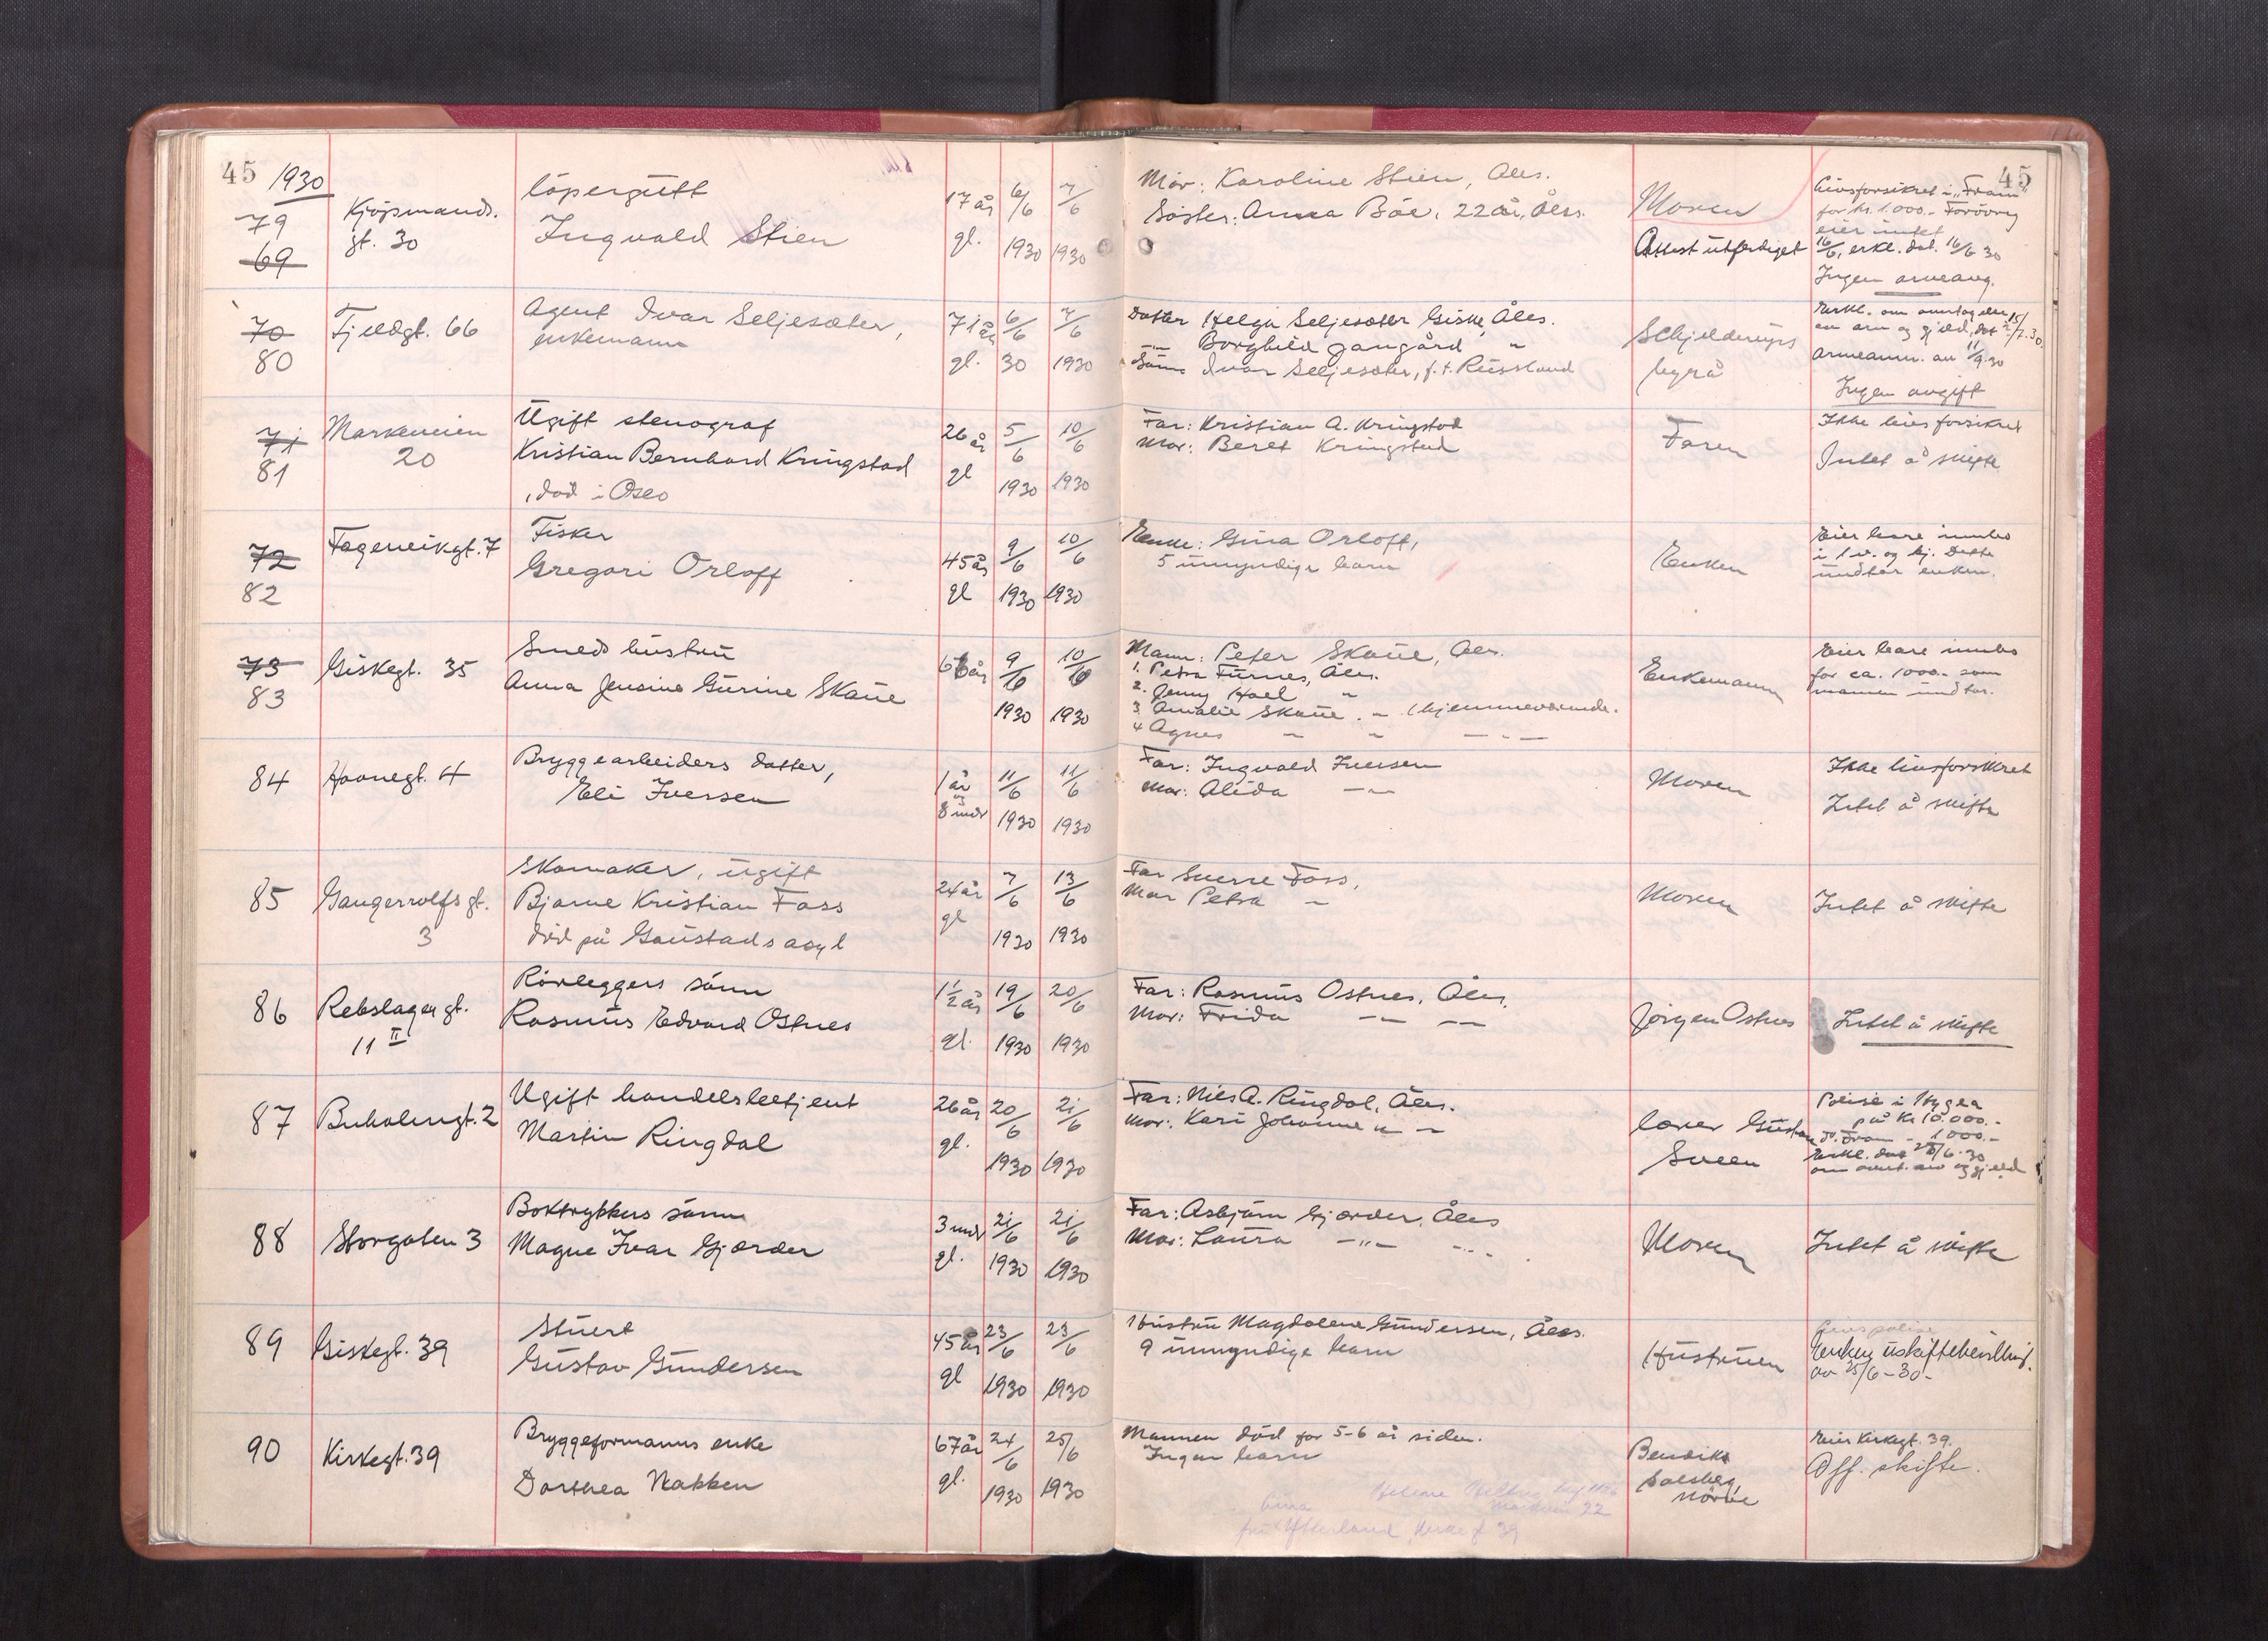 45 1930
45
79
69
Kjöpmands.
gt. 30
löpergutt
Ingvald Stien
17 år
gl.
6/6
1930
7/6
1930
Mor: Karoline Stien, Åles.
Söster: Anna Böe, 22 år, Åles.
Moren
Attest utferdiget
Livsforsikret i "Fram"
for kr. 1.000.- Forövrig
eier intet
16/6, erkl. dat. 16/6 30
Ingen arveavg.
70
80
Fjeldgt. 66
Agent Ivar Seljesæter,
enkemann
71 år
gl.
6/6
30
7/6
1930
Datter Helga Seljesæter Giske, Åles.
-"- Borghild Gangård "
Sönn Ivar Seljesæter, f.t. Russland
Schjelderups
byrå
Erkl. om overtagelse
av arv og gjeld, dat 15/7.30.
Arveanm. av 11/9.30
Ingen avgift
71
81
Markeveien
20
Ugift stenograf
Kristian Bernhard Kringstad
, död i Oslo
26 år
gl
5/6
1930
10/6
1930
Far: Kristian A. Kringstad
Mor: Beret Kringstad
Faren
Ikke livsforsikret
Intet å skifte
72
82
Fagerveikgt. 7
Fisker
Gregori Orloff
45 år
gl
9/6
1930
10/6
1930
Enke: Gina Orloff,
5 umyndige barn
Enken
Eier bare innbo
i l.v. og kj. Dette
undtar enken.
73
83
Giskegt. 35
Smeds hustru
Anna Jensine Gurine Skaue
66 år
9/6
1930
10/6
1930
Mann: Peter Skaue, Åles.
1. Petra Furnes, Åles.
2. Jenny Hoel "
3 Amalie Skaue. - (hjemmeværende.
4 Agnes - " -"-
Enkemann
Eier bare innbo
for ca. 1000.- som
mannen undtar.
84
Havnegt. 4
Bryggearbeiders datter,
Eli Iversen
1 år
og
8 mdr
11/6
1930
11/6
1930
Far: Ingvald Iversen
Mor: Alida -"-
Moren
Ikke livsforsikret
Intet å skifte
85
Gangerrolfs gt.
3
Skomaker, ugift
Bjarne Kristian Foss
död på Gaustads asyl
24 år
gl
7/6
1930
13/6
1930
Far Sverre Foss,
Mor Petra -
Moren
Intet å skifte
86
Rebslager gt.
11 II
Rörleggers sönn
Rasmus Edvard Ostnes
1 1/2 år
gl.
19/6
1930
20/6
1930
Far: Rasmus Ostnes, Åles.
Mor: Frida -"- -"-
Jörgen Ostnes
Intet å skifte
87
Buholmgt. 2
Ugift handelsbetjent
Martin Ringdal
26 år
gl.
20/6
1930
21/6
1930
Far: Nils A. Ringdal, Åles.
Mor: Kari Johanne " -
lærer Gustav
Sveen
Polise i Hygea
på kr 10.000.-
do. Fram - 1000.-
Erkl. dat 25/6.30
om overt. arv og gjeld
88
Storgaten 3
Boktrykkers sönn
Magne Ivar Gjærder
3 mdr
gl.
21/6
1930
21/6
1930
Far: Asbjörn Gjærder, Åles
Mor: Laura -"- -"-
Moren
Intet å skifte
89
Giskegt. 39
Stuert
Gustav Gundersen
45 år
gl
23/6
1930
23/6
1930
Hustru Magdalene Gundersen, Åles.
9 umyndige barn
Hustruen
Enken uskiftebevilling.
av 25/6-30.-
90
Kirkegt. 39
Bryggeformanns enke
Dorthea Nakken
67 år
gl.
24/6
1930
25/6
1930
Mannen död for 5-6 år siden.
Ingen barn
Bendik
Solsberg,
Nörve
Eier Kirkegt. 39.
Off. skifte.